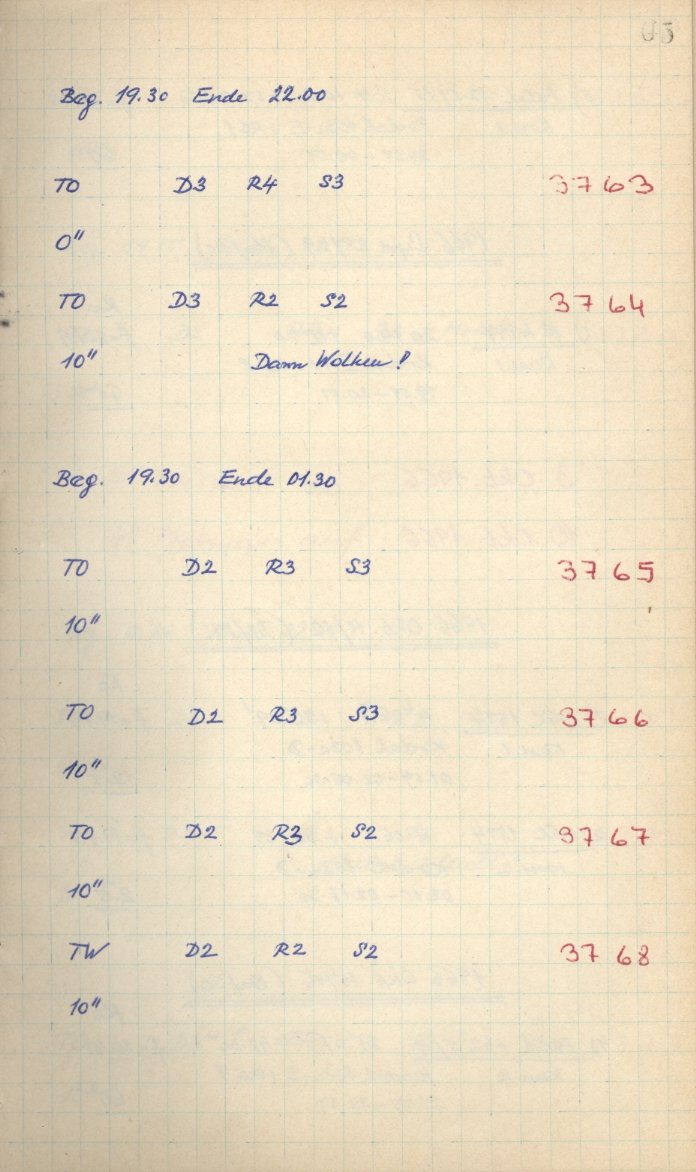 Beg. 19.30 Ende 22.00
TO D3 R4 S3 3763
0"
TO D3 R2 S2 3764
10" Dann Wolken!
Beg. 19.30 Ende 01.30
TO D2 R3 S3 3765
10"
TO D2 R3 S3 3766
10"
TO D2 R3 S2 3767
10"
TW D2 R2 S2 3768
10"